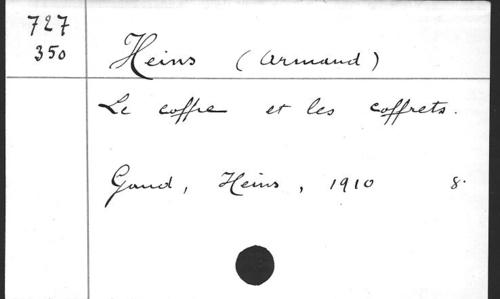 727
350
Heins (Armand)
Le coffre et les coffrets.
Gand, Heins, 1910 8.